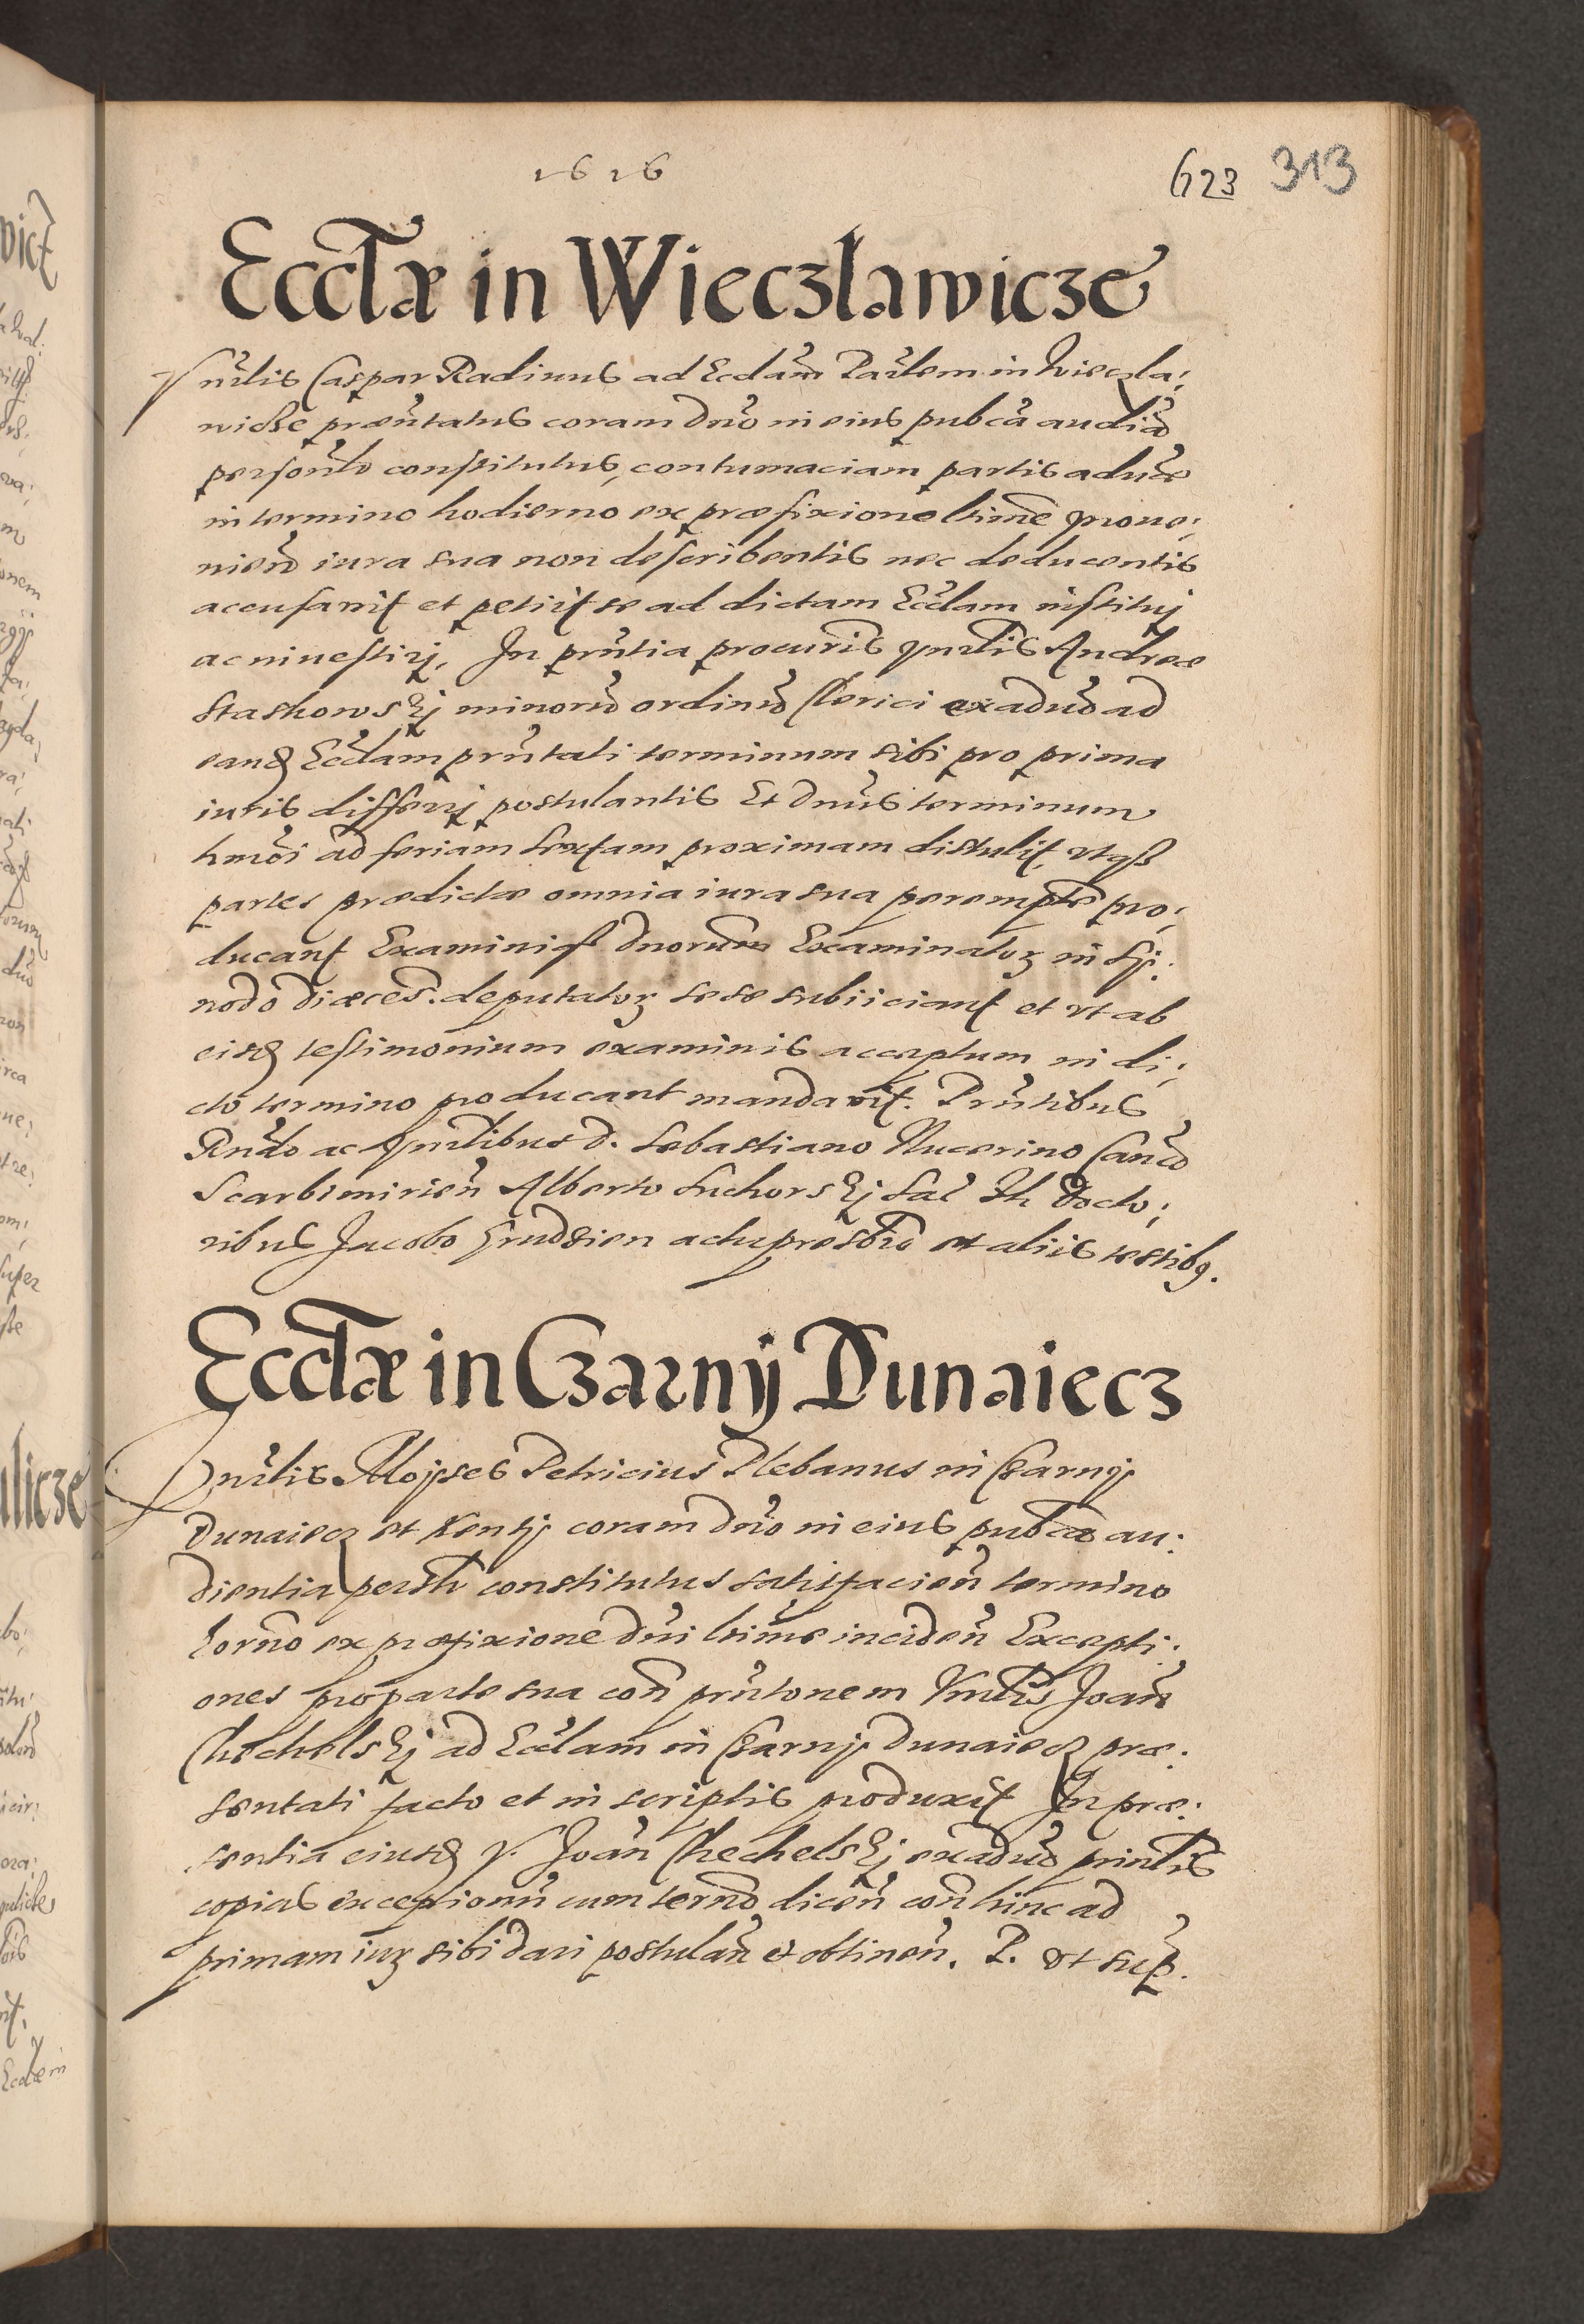 1616
623 313
Eccłæ in Wieczławicze
Vnrlis Caspar Radinus ad Eccłam Parlem in Wieczła;
wicze præntatus coram Dno in eius pubca audia
personlr constitutus, contumaciam partis aduæ
in termino hodierno ex præfixione ltime proue;
nien iura sua non describentis nec deducentis
accusavit et petiit se ad dictam Ecclam instituj
ac inuestirj, In prntia procuris vnrlis Andreæ
Staskowskj minorū ordinū Clerici ex aduo ad
eand Ecclam prntati terminum sibi pro prima
iuris differrj postulantis Et Dnus terminum
hmōi ad feriam sextam proximam distulit, vtqȝ
partes prædictæ omnia iura sua perempte pro;
ducant Examiniqȝ Dnorum Examinatoȝ in Sy;
nodo Diæces. deputatoȝ sese subiiciant et vt ab
eisd testimonium examinis acceptum in di;
cto termino producant mandavit. Prntibus
Rndo ac Vnrlibus D. Sebastiano Nucerino Canco
Scarbimirien Alberto Suchorskj Sac Th Docto;
ribus Jacobo Grudzien actupresbro et aliis testibȝ.
Eccłæ in Czarny Dunaiecz
Vnrlis Moyses Petricius Plebanus in Czarny
Dunaiecz et Kenty coram Dno in eius pubca au;
dientia perslr constitutus satisfacien termino
horno ex præfixione Dni ltime inciden Excepti;
ones pro parte sua con prntonem Vnrlis Joan
Chechelskj ad Ecclam in Czarny Dunaiecz præ;
sentati facto et in scriptis produxit In præ;
sentia eiusd V. Joan Chechelskj ex aduo prinlis
copias exceptionū cum termo dicen con hinc ad
primam iuȝ sibi dari postulan et obtinen. P. vt sup.